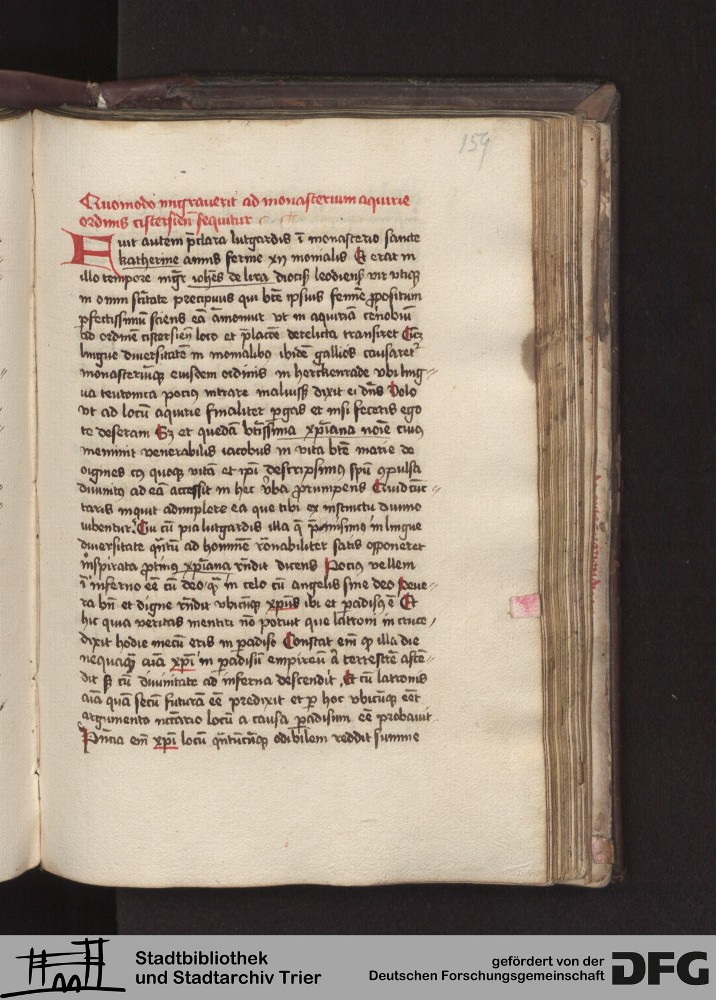 159
Quomodo migraverit ad monasterium aquirie
ordinis cisterciens̄ sequitur
Fuit autem p̄clara lutgardis ī monasterio sancte
katherine annis ferme xij monialis Et erat in
illo tempore mḡr ioh̄es de lira dioc̄ leodiens̄ vir utiqꝫ
in omni sc̄itate precipuus qui b̄te ipsius femīe propositum
ꝑfectissimum sciens eā āmonuit vt in aquiriā cenobiū
ad ordinē cistersien̄ loco et p̄lacōe derelicta transiret Cūqꝫ
lingue diversitatē in monialibꝰ ibidē gallicis causaret᷑
monasteriūqꝫ eiusdem ordinis in herckenrade vbi ling
ua teutonica pociꝰ intrare maluiss̄ dixit ei dn̄s Volo
vt ad locū aquirie finaliter ꝑgas et nisi feceris ego
te deseram Sꝫ et quedā b̄tissima xp̄iana noīe cuiꝰ
meminit venerabilis iacobus in vita b̄te marie de
oignies cꝰ quoqꝫ vitā et ip̄i descripsimꝰ sp̄u ꝯpulsa
divinitꝰ ad eā accessit in hec v̄ba prorumpens Quid cūc
taris inquit adimplere ea que tibi ex instinctu divino
iubentur Cui cū pia lutgardis illa
diversitate qn̄tū ad hominē rōnabiliter satis opponeret
inspirata protinꝰ xp̄iana rn̄dit dicens Pociꝰ vellem
ī inferno eē cū deo qꝫ̄ in celo cū angelis sine deo Seve
ra bn̄ et digne rn̄dit vbicūqꝫ xp̄us ibi et padisꝰ ē Et
hic quia veritas mentiri nō potuit que latroni in cruce
dixit hodie mecū eris in padiso Constat em̄ ꝙ illa die
nequaqꝫ̄ aīa xp̄i in padisū empireū aut terrestrē ascē
dit sꝫ cū divinitate ad inferna descendit Et cū latronis
aīam quā secū futurā eē predixit et ꝑ hoc vbicūqꝫ eēt
argumento nc̄cario locū a causa ꝑadisum eē probavit
Pn̄cia em̄ xp̄i locū qn̄tūcūqꝫ odibilem reddit summe
Stadtbibliothek
und Stadtarchiv Trier
gefördert von der
Deutschen Forschungsgemeinschaft
DFG